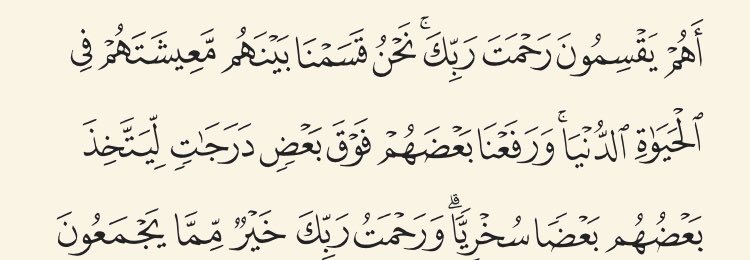 أَهُمۡ يَقۡسِمُونَ رَحۡمَتَ رَبِّكَۚ نَحۡنُ قَسَمۡنَا بَيۡنَهُم مَّعِيشَتَهُمۡ فِي
ٱلۡحَيَوٰةِ ٱلدُّنۡيَاۚ وَرَفَعۡنَا بَعۡضَهُمۡ فَوۡقَ بَعۡضٖ دَرَجَٰتٖ لِّيَتَّخِذَ
بَعۡضُهُم بَعۡضٗا سُخۡرِيّٗاۗ وَرَحۡمَتُ رَبِّكَ خَيۡرٞ مِّمَّا يَجۡمَعُونَ